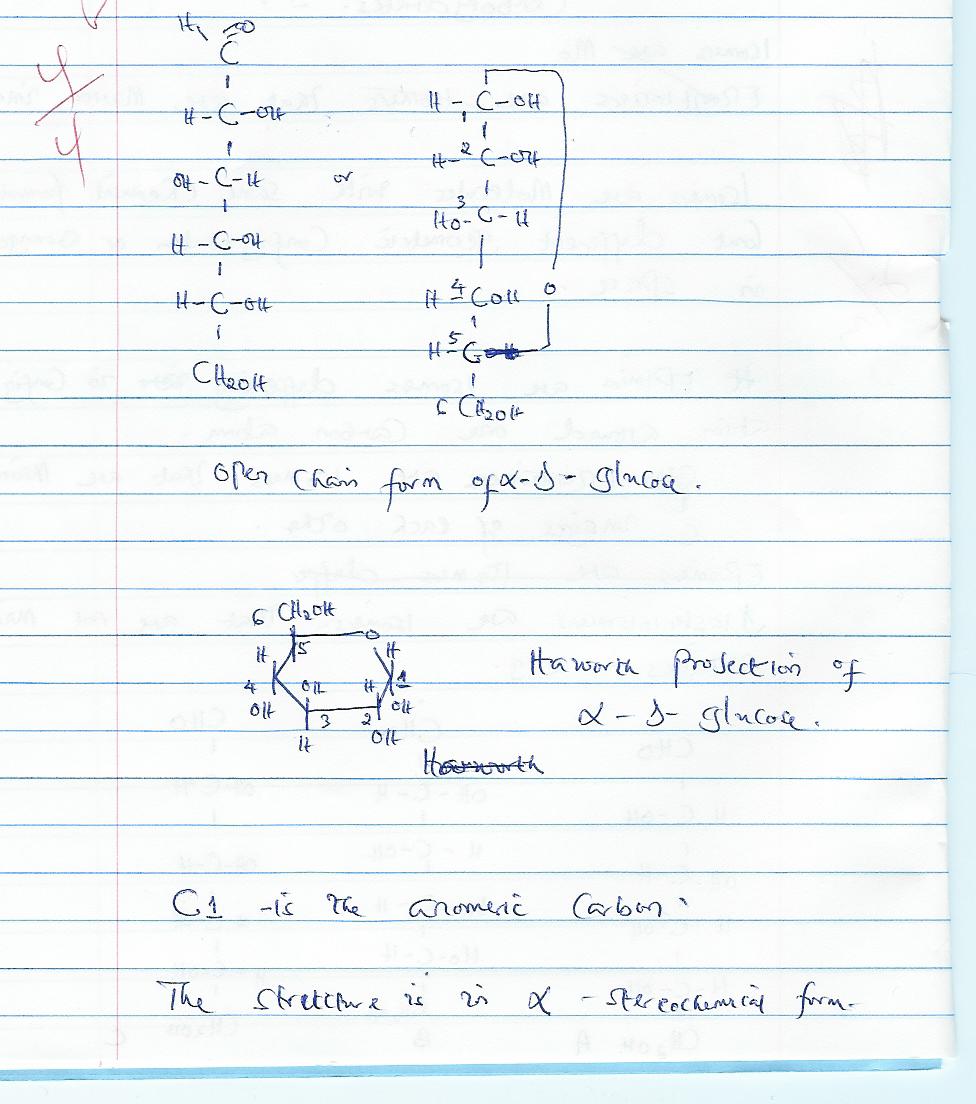 4/4
H O
C
H-C-OH
OH-C-H
H-C-OH
H-C-OH
CH2OH
or
H-C-OH
1
H-2C-OH
3
HO-C-H
H 4 COH O
H-5C
6 CH2OH
Open Chain form of α-D-glucose.
6 CH2OH
O
H 5 H
4 OH H 1
OH OH
3 2
H OH
Haworth Projection of
α-D-glucose.
Haworth
C1 -is the anomeric Carbon.
The structure is in α-stereochemical form.